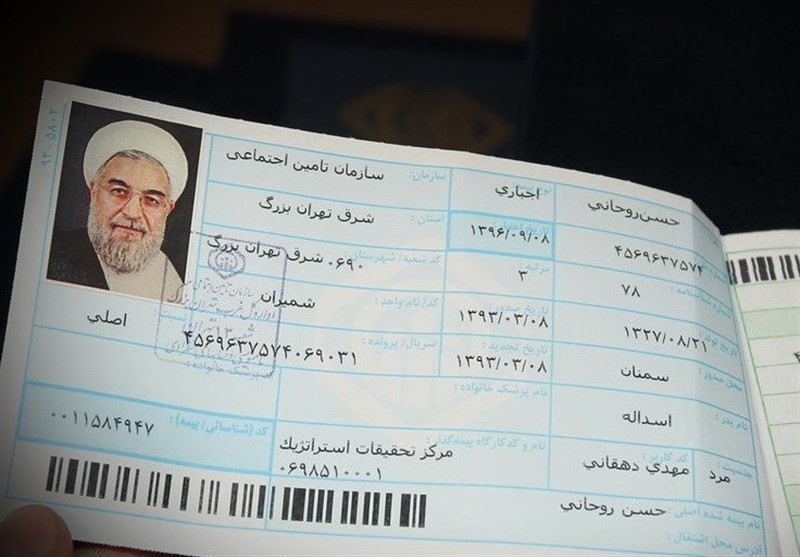 حسن‌روحاني
اجباري
سازمان: سازمان تامین اجتماعی
۴۵۶۹۶۳۷۵۷۴
تاریخ اعتبار: ۱۳۹۶/۰۹/۰۸
استان: شرق تهران بزرگ
شماره شناسنامه: ۷۸
مرتبه: ۳
کد شعبه/ شهرستان: ۰۶۹۰ شرق تهران بزرگ
تاریخ تولد: ۱۳۲۷/۰۸/۲۱
تاریخ صدور: ۱۳۹۳/۰۳/۰۸
کد/ نام واحد: شمیران
محل صدور: سمنان
تاریخ تجدید: ۱۳۹۳/۰۳/۰۸
سریال/ پرونده: ۴۵۶۹۶۳۷۵۷۴۰۶۹۰۳۱
نسبت: اصلي
نام پدر: اسداله
نام پزشک خانواده:
کد پزشک خانواده:
جنسیت: مرد
کد کاربر: مهدي دهقاني
نام و کدکارگاه بیمه‌گذار: مرکز تحقیقات استراتژیك
۰۶۹۸۵۱۰۰۰۱
کد (شناسائی/ بیمه): ۰۰۱۱۵۸۴۹۴۷
نام بیمه شده اصلی: حسن روحاني
آدرس محل اشتغال:
سازمان تامین اجتماعی